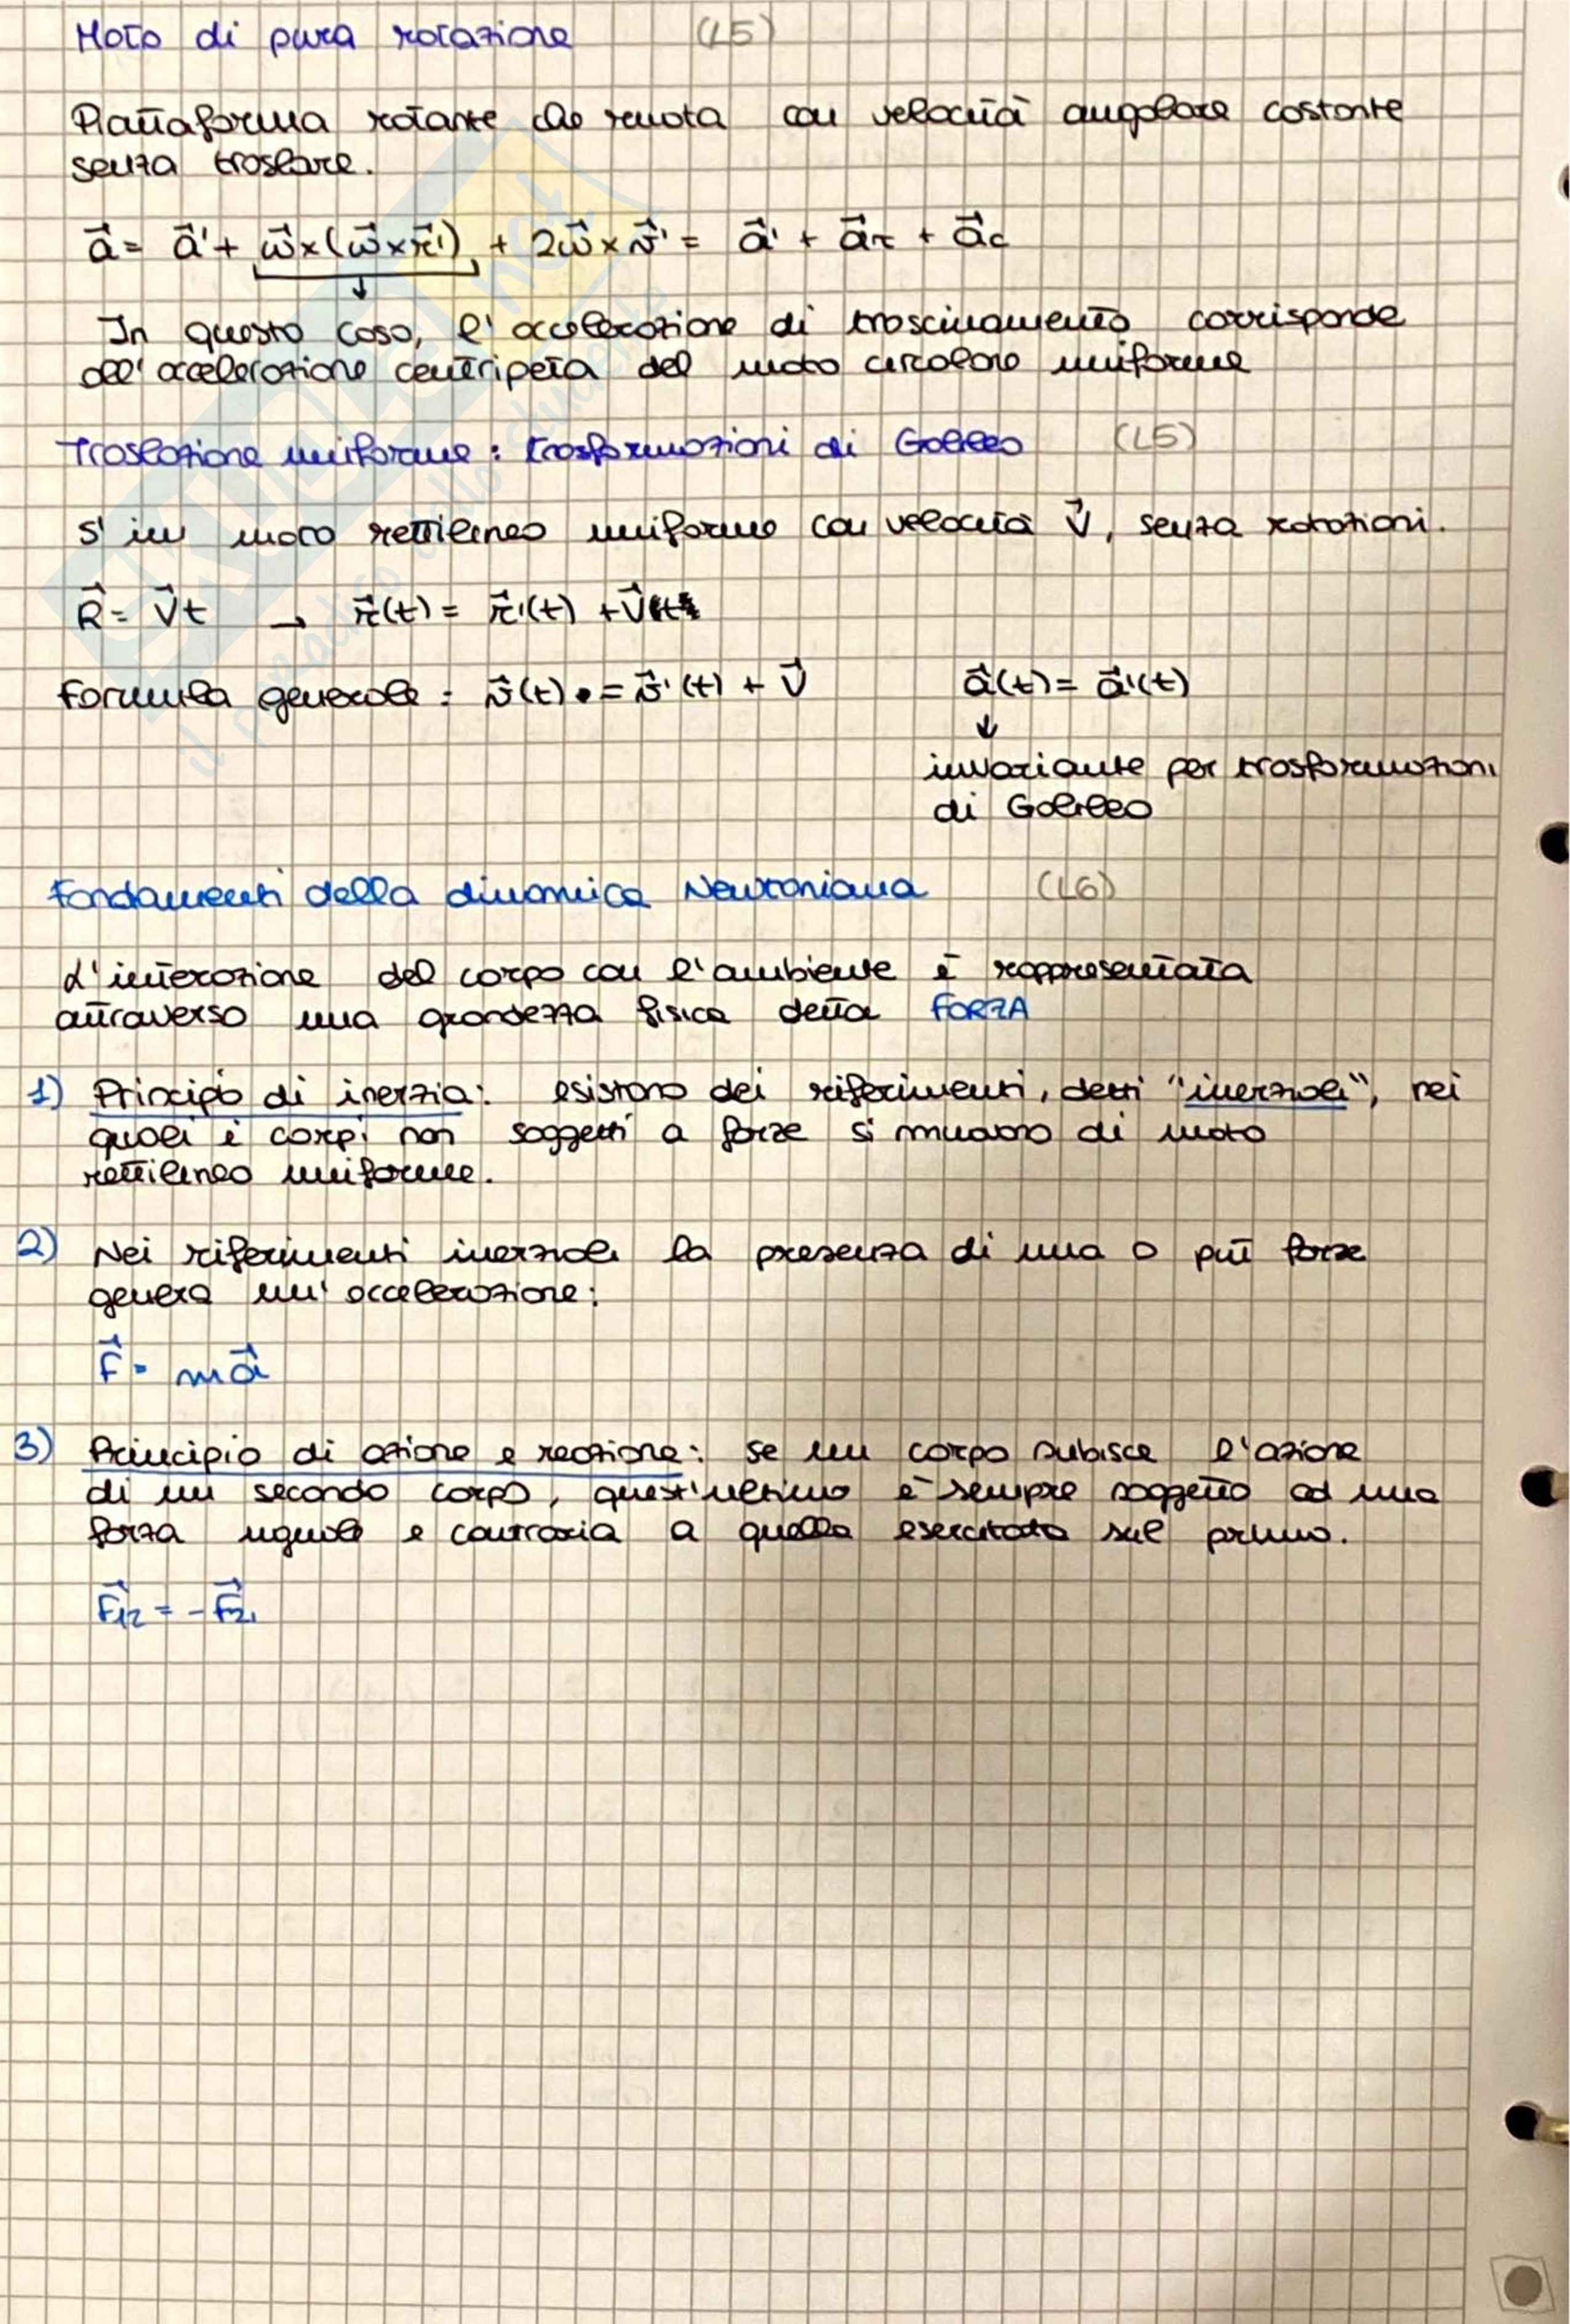 Moto di pura rotazione (L5)
Piattaforma rotante che ruota con velocità angolare costante
senza traslare.
a⃗ = a⃗' + ω⃗×(ω⃗×r⃗') + 2ω⃗×v⃗' = a⃗' + a⃗τ + a⃗c
↓
In questo caso, l'accelerazione di trascinamento corrisponde
all'accelerazione centripeta del moto circolare uniforme
Traslazione uniforme: trasformazioni di Galileo (L5)
S' in moto rettilineo uniforme con velocità V⃗, senza rotazioni.
R⃗ = V⃗t → r⃗(t) = r⃗'(t) + V⃗t
Formula generale: v⃗(t) = v⃗'(t) + V⃗ a⃗(t) = a⃗'(t)
↓
invariante per trasformazioni
di Galileo
Fondamenti della dinamica Newtoniana (L6)
L'interazione del corpo con l'ambiente è rappresentata
attraverso una grandezza fisica detta FORZA
1) Principio di inerzia: esistono dei riferimenti, detti "inerziali", nei
quali i corpi non soggetti a forze si muovono di moto
rettilineo uniforme.
2) Nei riferimenti inerziali la presenza di una o più forze
genera un'accelerazione:
F⃗ = ma⃗
3) Principio di azione e reazione: se un corpo subisce l'azione
di un secondo corpo, quest'ultimo è sempre soggetto ad una
forza uguale e contraria a quella esercitata sul primo.
F⃗12 = -F⃗21